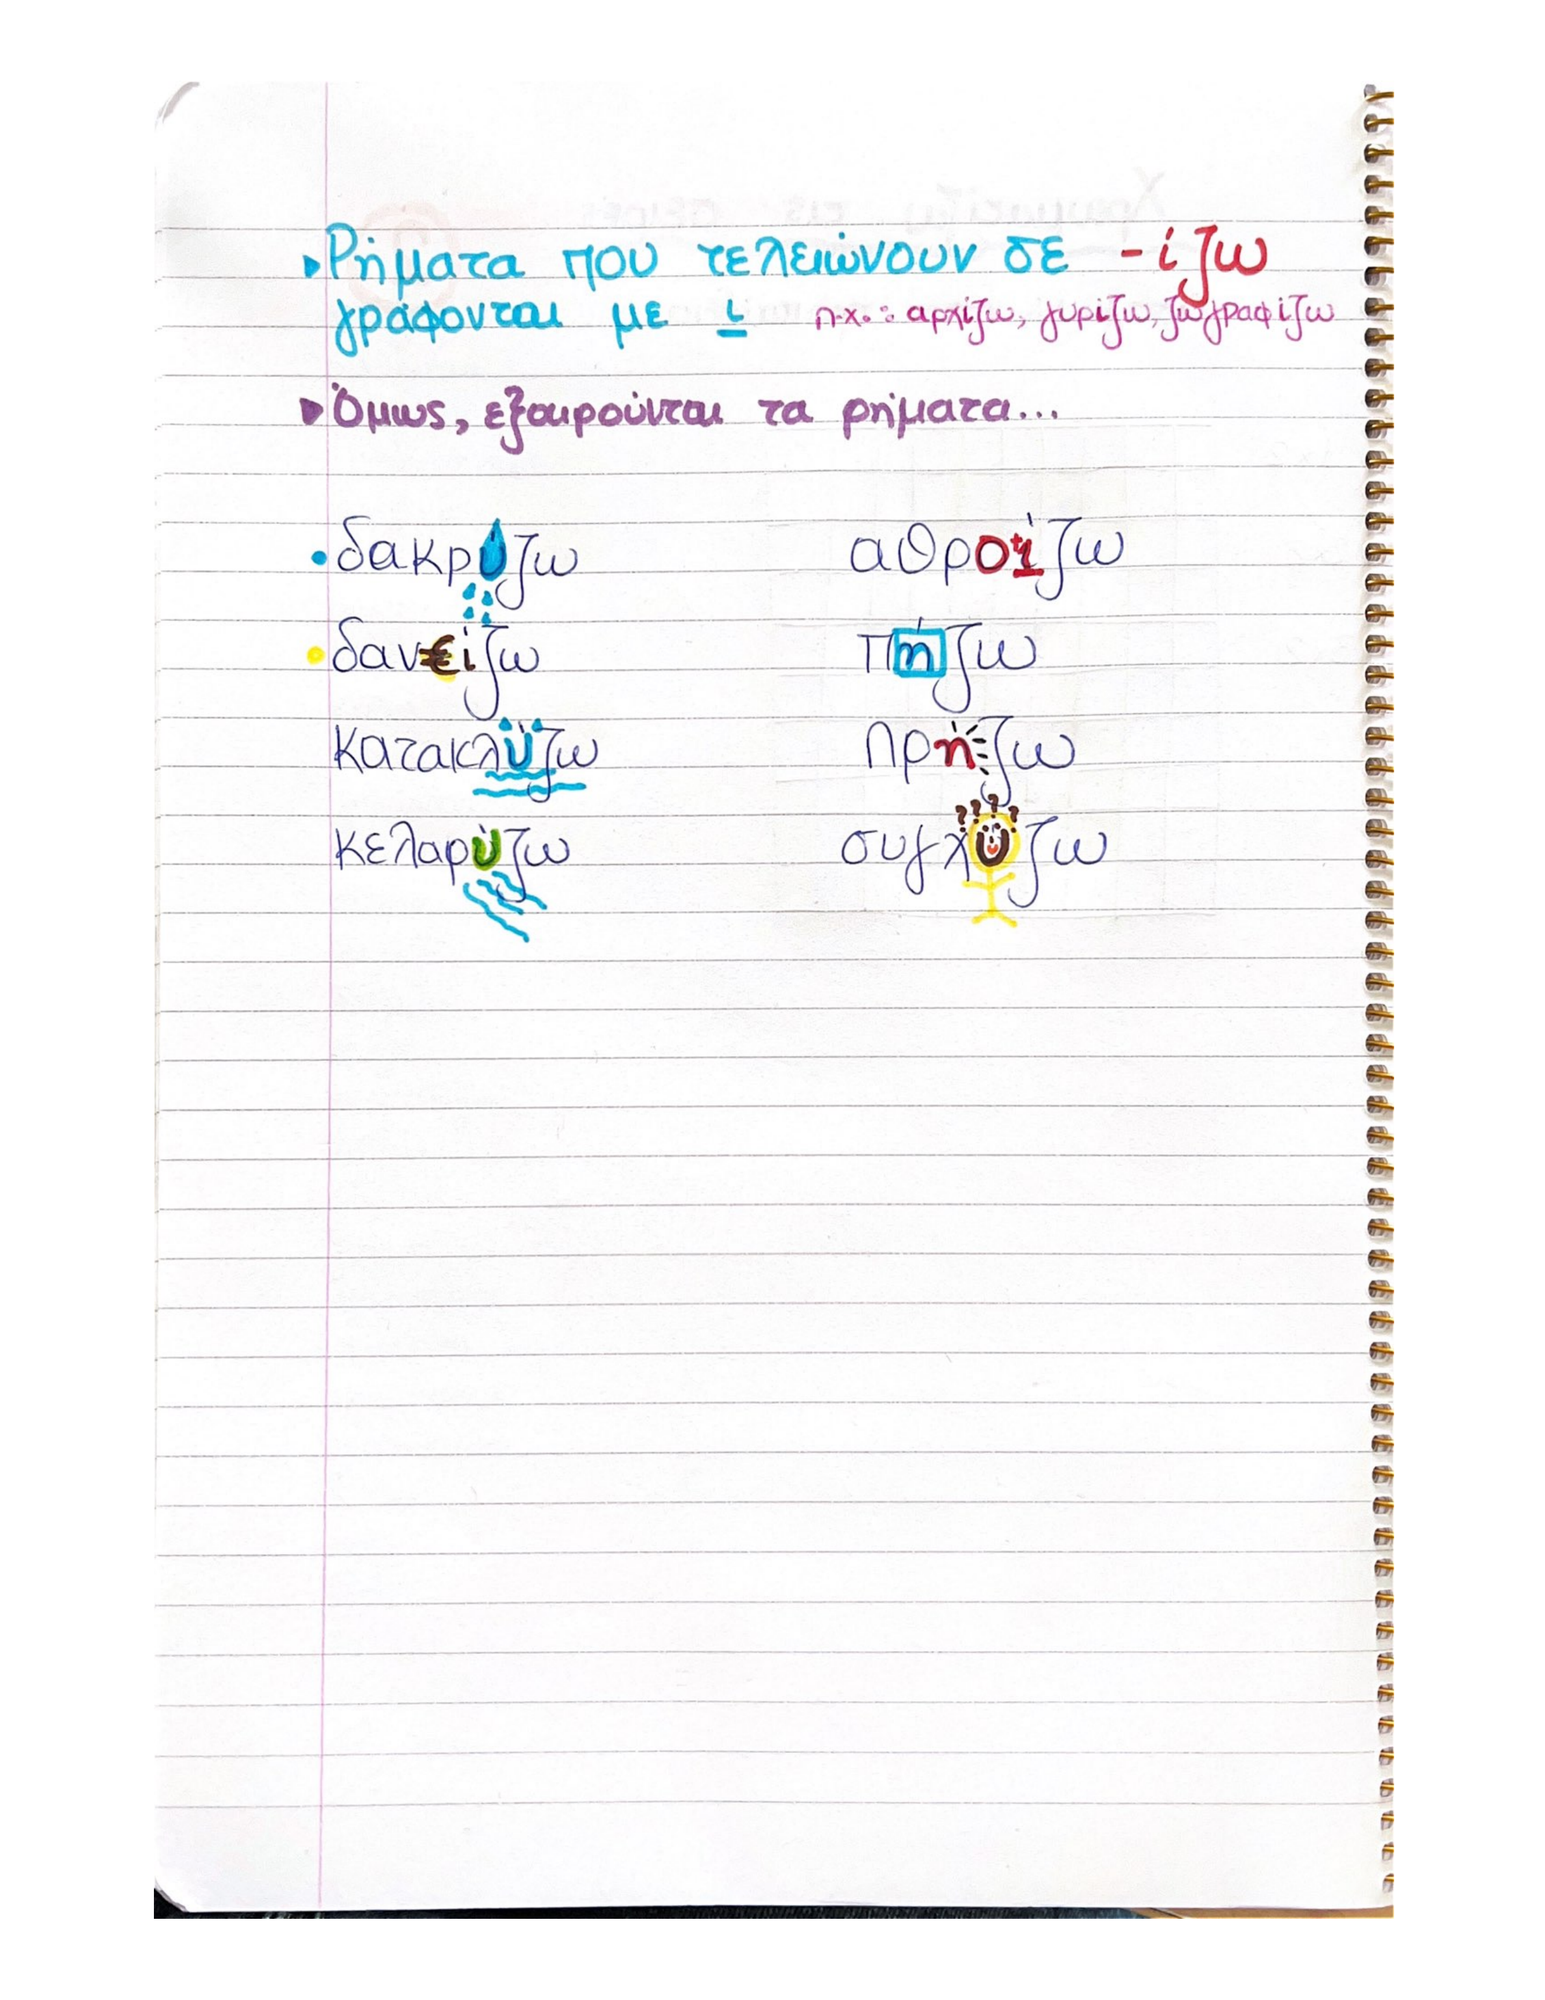 Ρήματα που τελειώνουν σε -ίζω
γράφονται με ι π.χ.: αρχίζω, γυρίζω, ζωγραφίζω
Όμως, εξαιρούνται τα ρήματα...
δακρύζω αθροίζω
δανείζω πήζω
κατακλύζω πρήζω
κελαρύζω συγχύζω